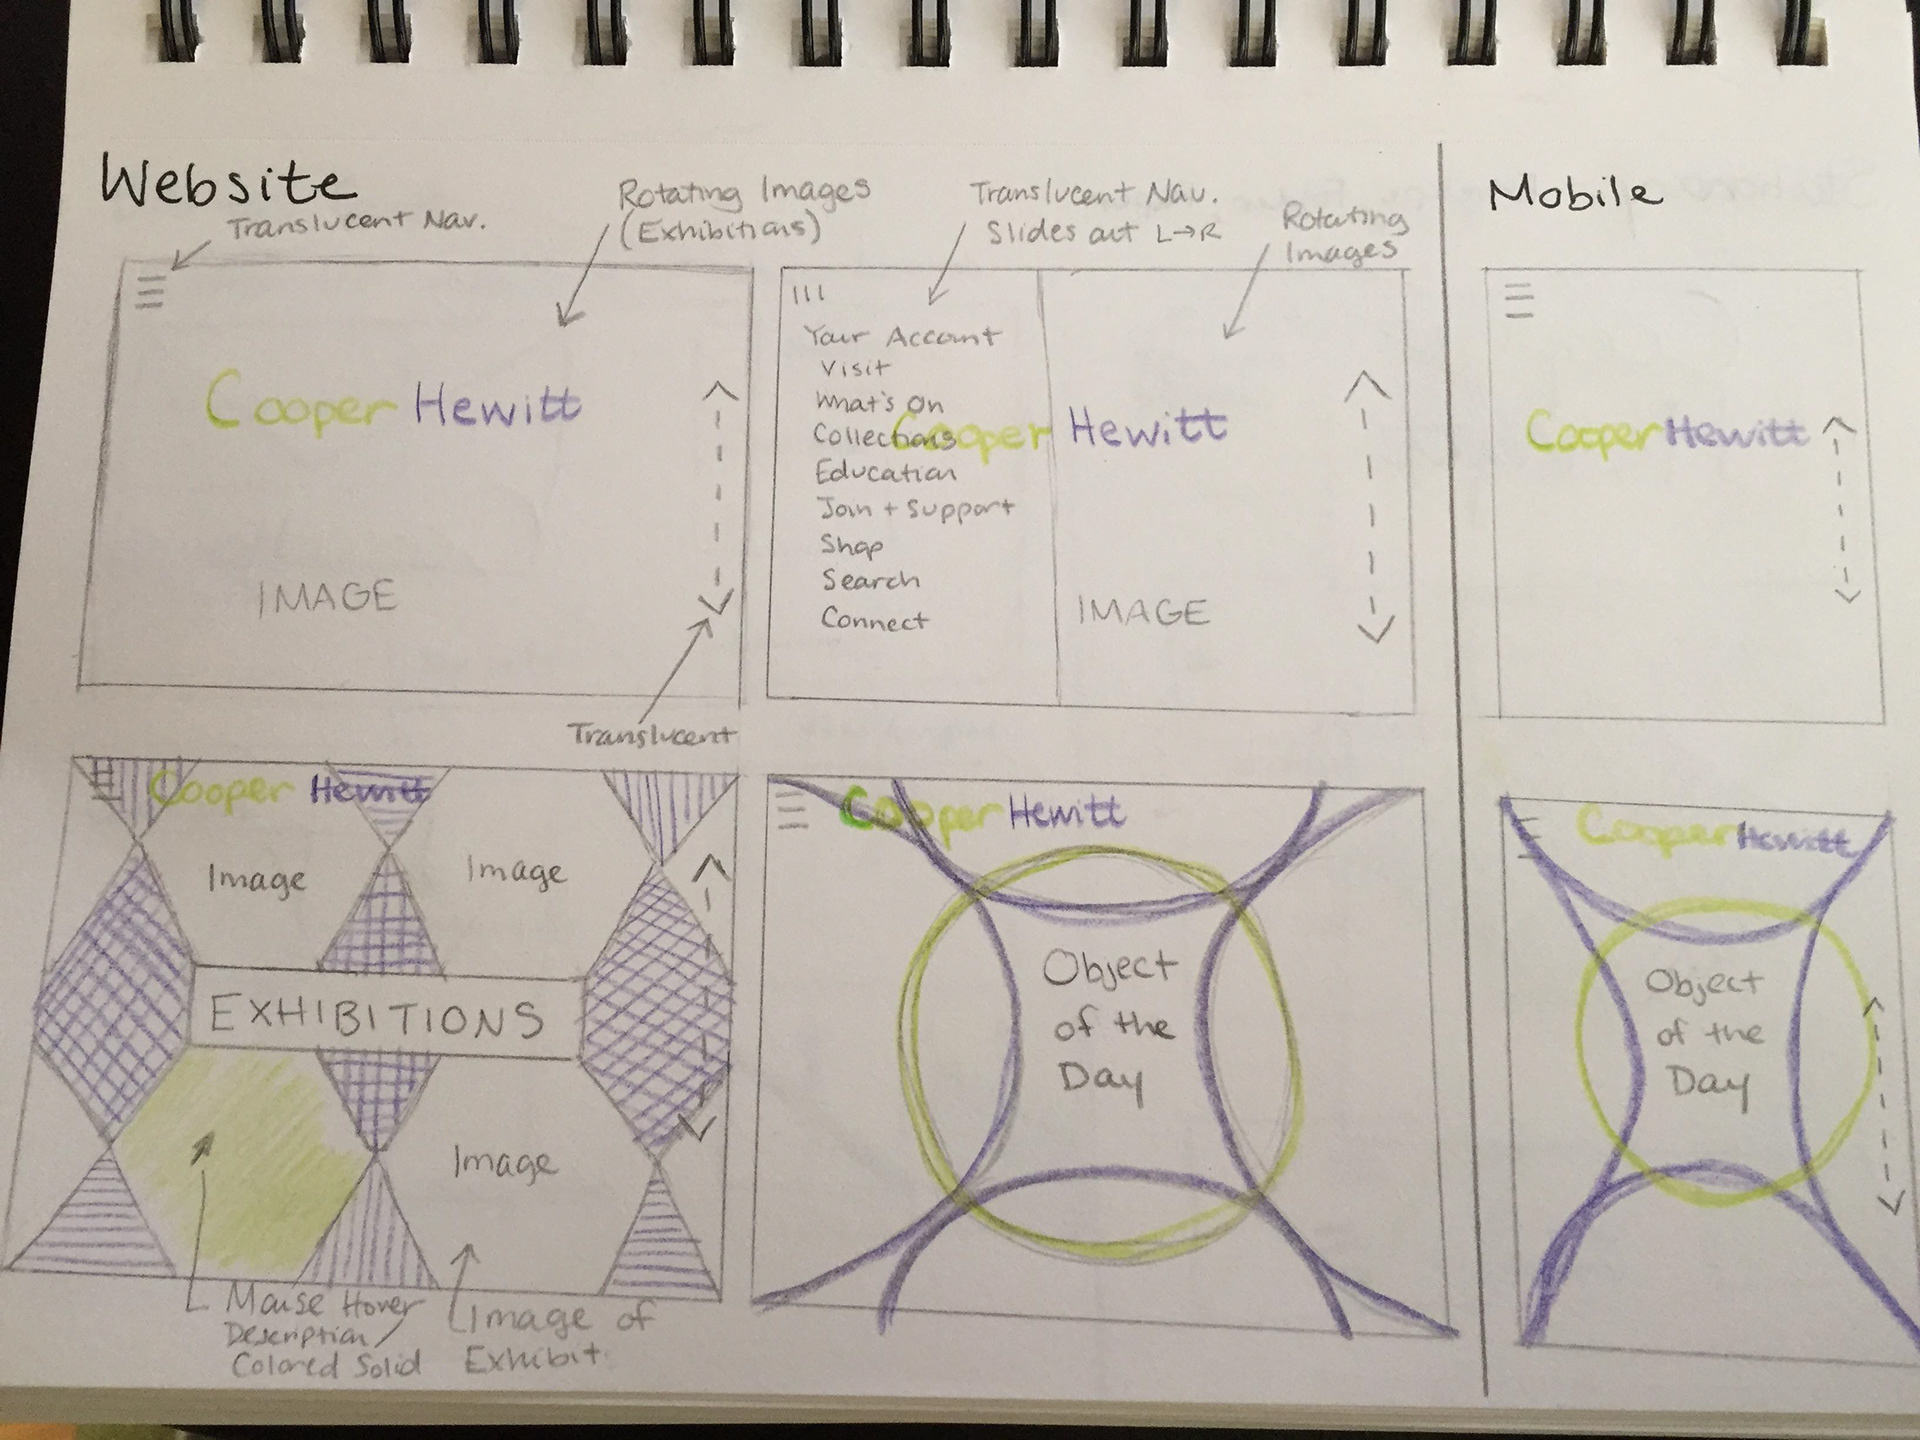 Website
Translucent Nav.
Rotating Images
(Exhibitions)
Translucent Nav.
Slides out L→R
Rotating
Images
Mobile
Cooper Hewitt
IMAGE
Translucent
Your Account
Visit
What's On
Collections
Education
Join + Support
Shop
Search
Connect
Cooper Hewitt
IMAGE
Cooper Hewitt
Cooper Hewitt
Image
Image
EXHIBITIONS
Image
Mouse Hover
Description/
Colored Solid
Image of
Exhibit.
Cooper Hewitt
Object
of the
Day
Cooper Hewitt
Object
of the
Day